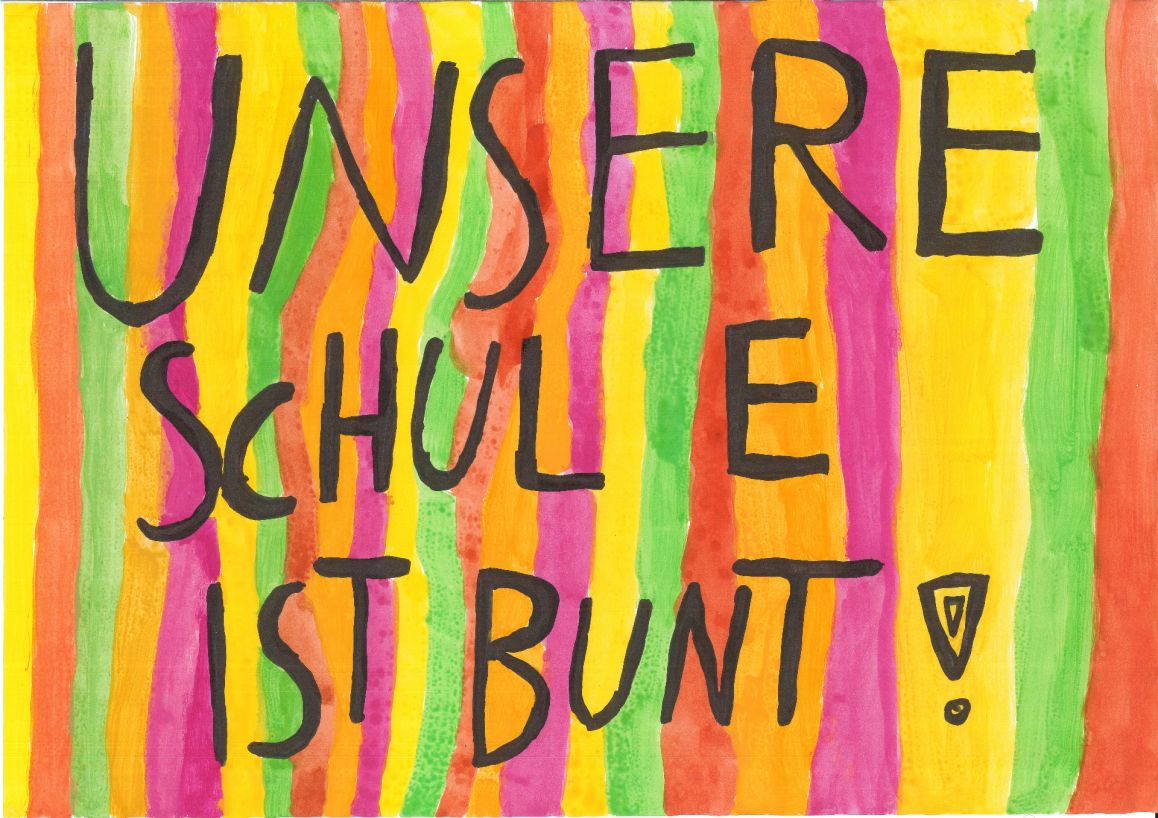 UNSERE
SCHULE
IST BUNT!